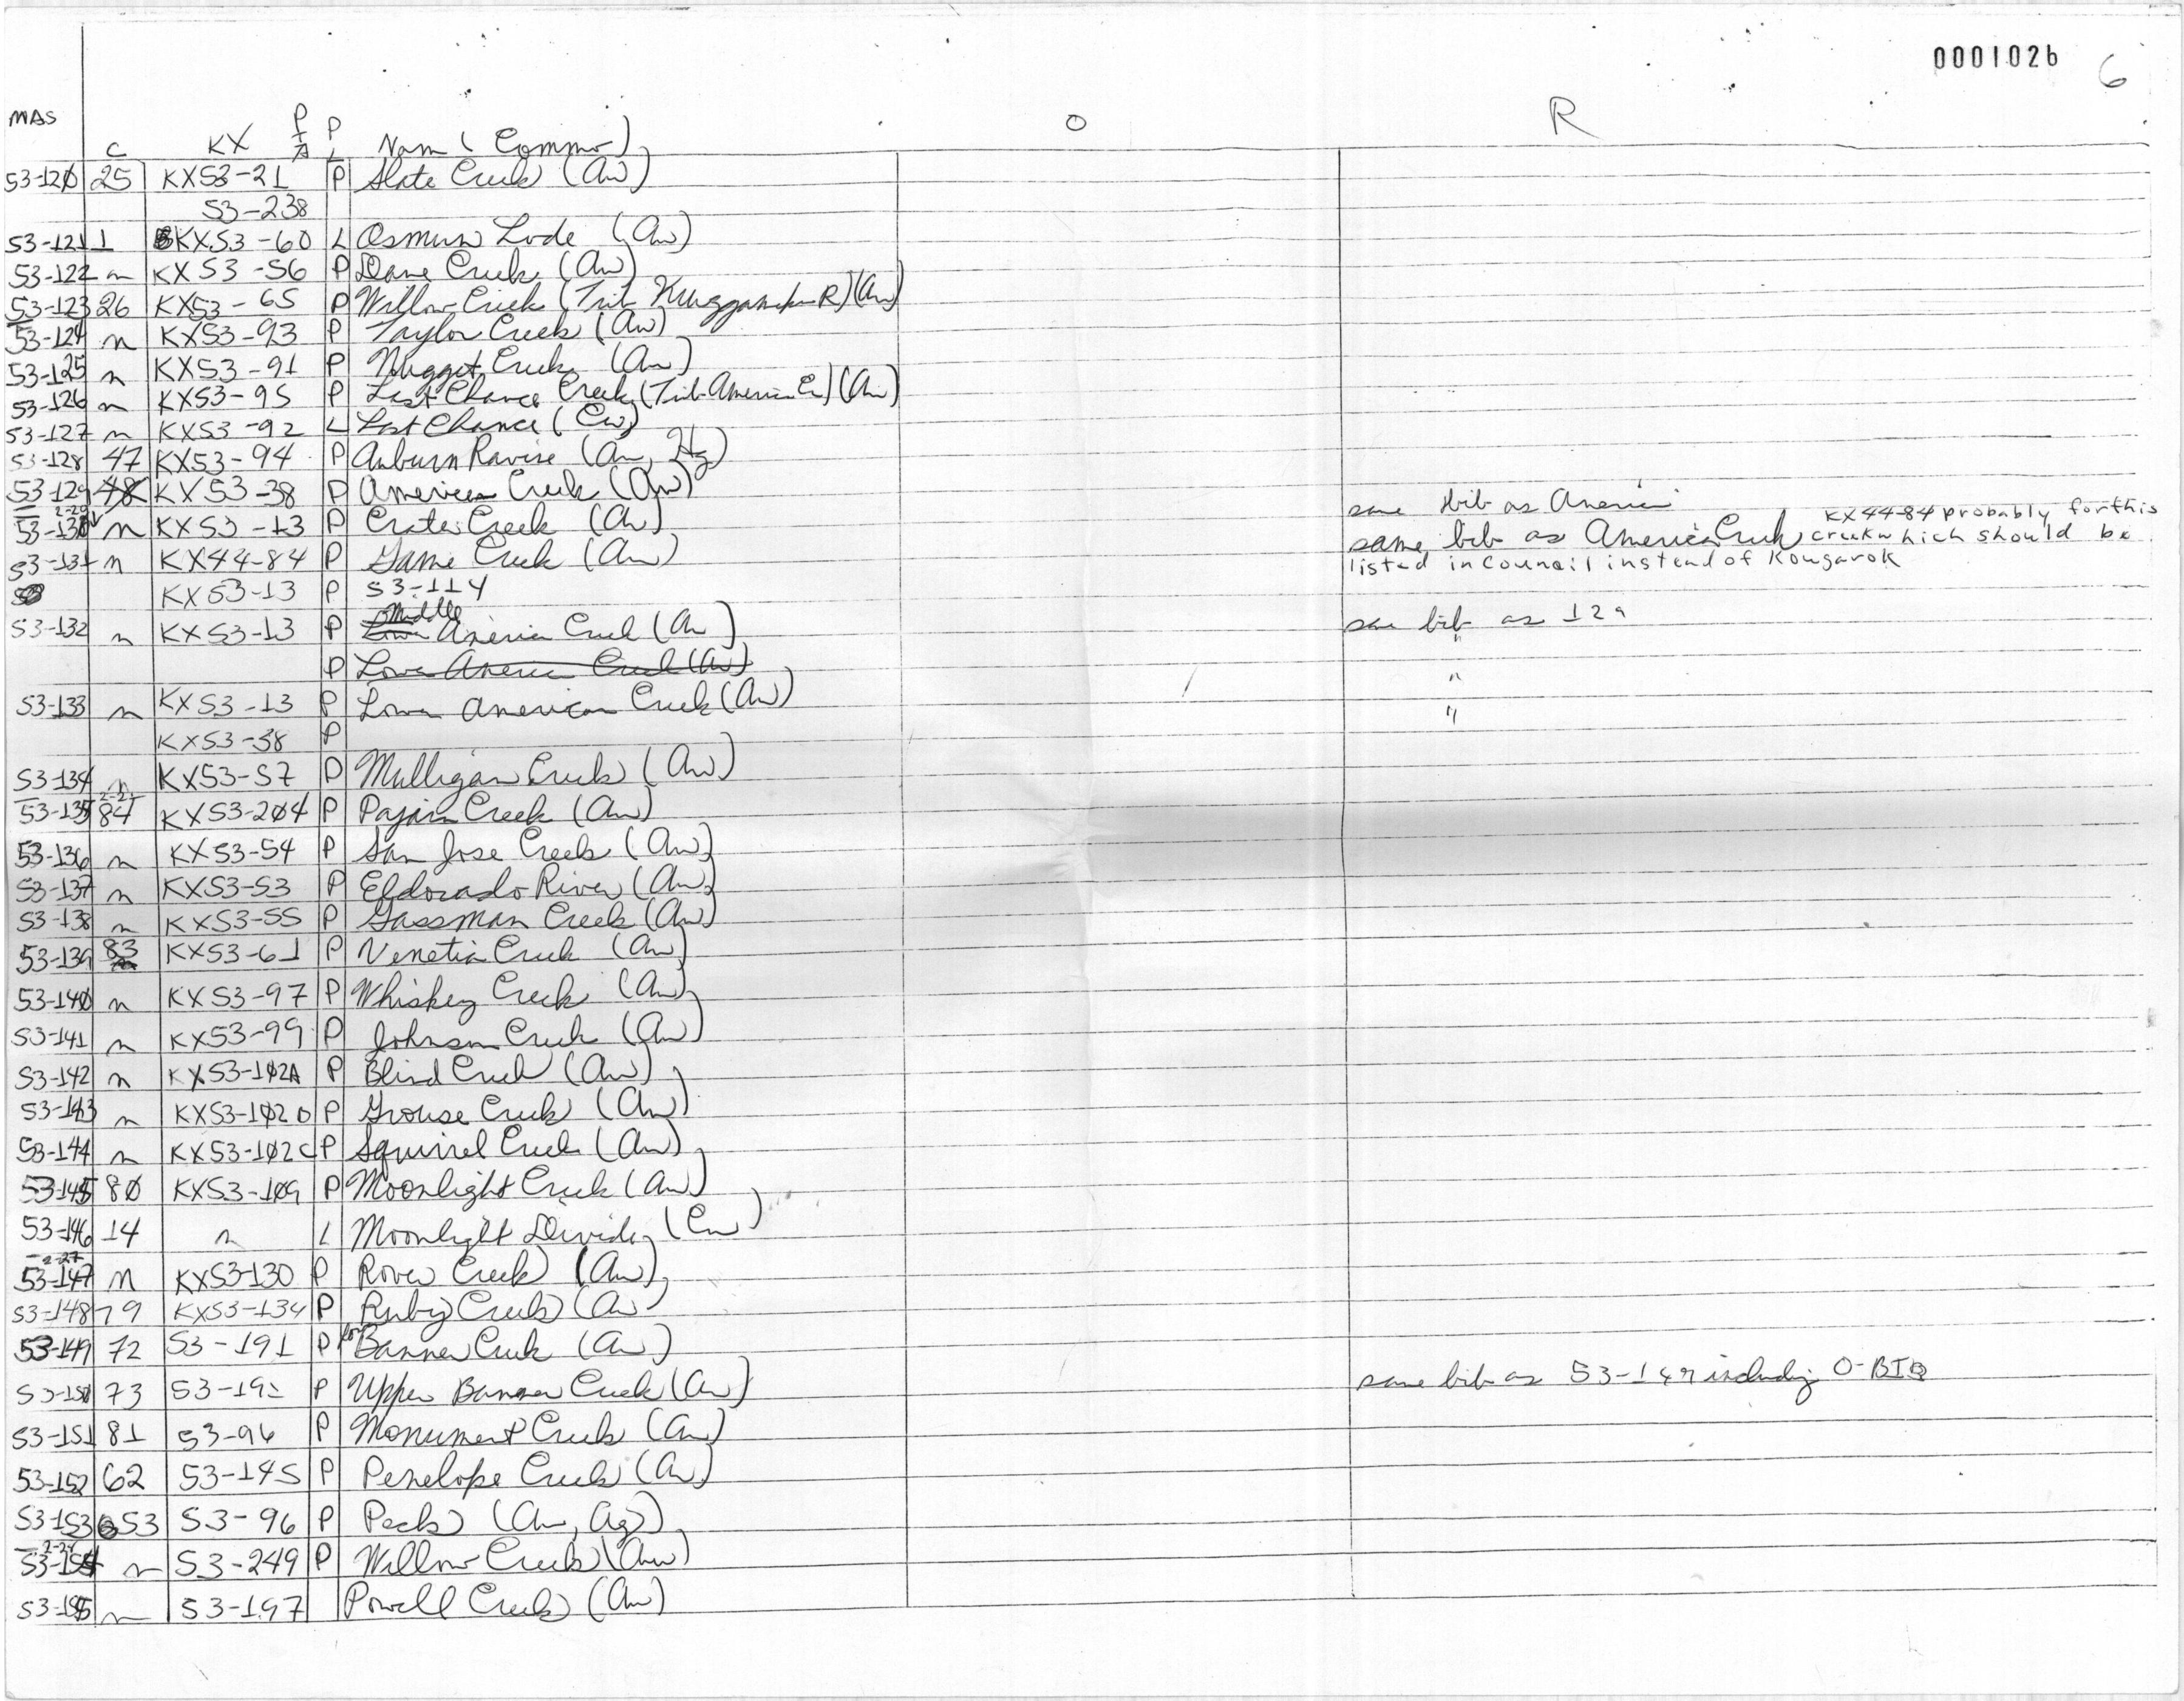 0001026 6
MAS C KX P P Nam (Commo) O R
53-120 25 KX53-21 P Slate Creek (Au)
53-238
53-121 1 KX53-60 L Osmun Lode (Au)
53-122 n KX53-56 P Dome Creek (Au)
53-123 26 KX53-65 P Willow Creek (Trib R) (Au)
53-124 n KX53-93 P Taylor Creek (Au)
53-125 n KX53-91 P Nugget Creek (Au)
53-126 n KX53-95 P Last Chance Creek (Trib American Cr) (Au)
53-127 n KX53-92 L Last Chance (Cu)
53-128 47 KX53-94 P Auburn Ravine (Au, Hg)
53-129 48 KX53-38 P American Creek (Au)
53-130 n KX53-13 P Crater Creek (Au) same bib as American
53-131 n KX44-84 P Game Creek (Au) same bib as American Creek KX44-84 probably for this creek which should be
listed in Council instead of Kougarok
KX53-13 P 53-114
53-132 n KX53-13 P Middle American Creek (Au) same bib as 129
P Lower American Creek (Au) "
53-133 n KX53-13 P Lower American Creek (Au) "
KX53-38 P
53-134 n KX53-57 P Mulligan Creek (Au)
53-135 84 KX53-204 P Pajara Creek (Au)
53-136 n KX53-54 P San Jose Creek (Au)
53-137 n KX53-53 P Eldorado River (Au)
53-138 n KX53-55 P Gassman Creek (Au)
53-139 83 KX53-61 P Venetia Creek (Au)
53-140 n KX53-97 P Whiskey Creek (Au)
53-141 n KX53-99 P Johnson Creek (Au)
53-142 n KX53-102A P Blind Creek (Au)
53-143 n KX53-102D P Grouse Creek (Au)
53-144 n KX53-102C P Squirrel Creek (Au)
53-145 80 KX53-109 P Moonlight Creek (Au)
53-146 14 n L Moonlight Divide (Cu)
2-27
53-147 n KX53-130 P Rover Creek (Au)
53-148 79 KX53-134 P Ruby Creek (Au)
53-149 72 53-191 P Banner Creek (Au)
53-150 73 53-192 P Upper Banner Creek (Au) same bib as 53-149 including O-BIB
53-151 81 53-96 P Monument Creek (Au)
53-152 62 53-145 P Penelope Creek (Au)
53-153 53 53-96 P Peck (Au, Ag)
53-154 n 53-249 P Willow Creek (Au)
53-155 n 53-197 Powell Creek (Au)